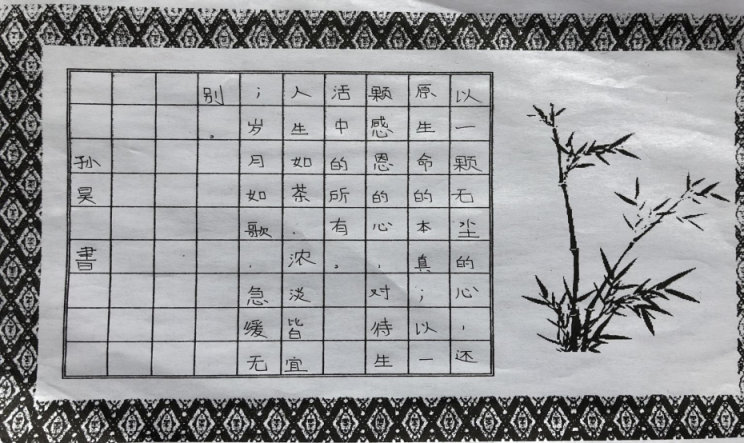 以一颗无尘的心，还
原生命的本真；以一
颗感恩的心，对待生
活中的所有。
人生如茶，浓淡皆宜
；岁月如歌，急缓无
别。
孙昊 書